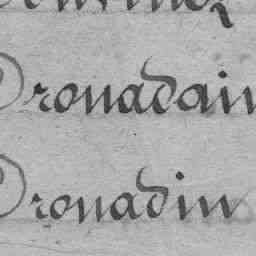 Dronadain
Dronadin